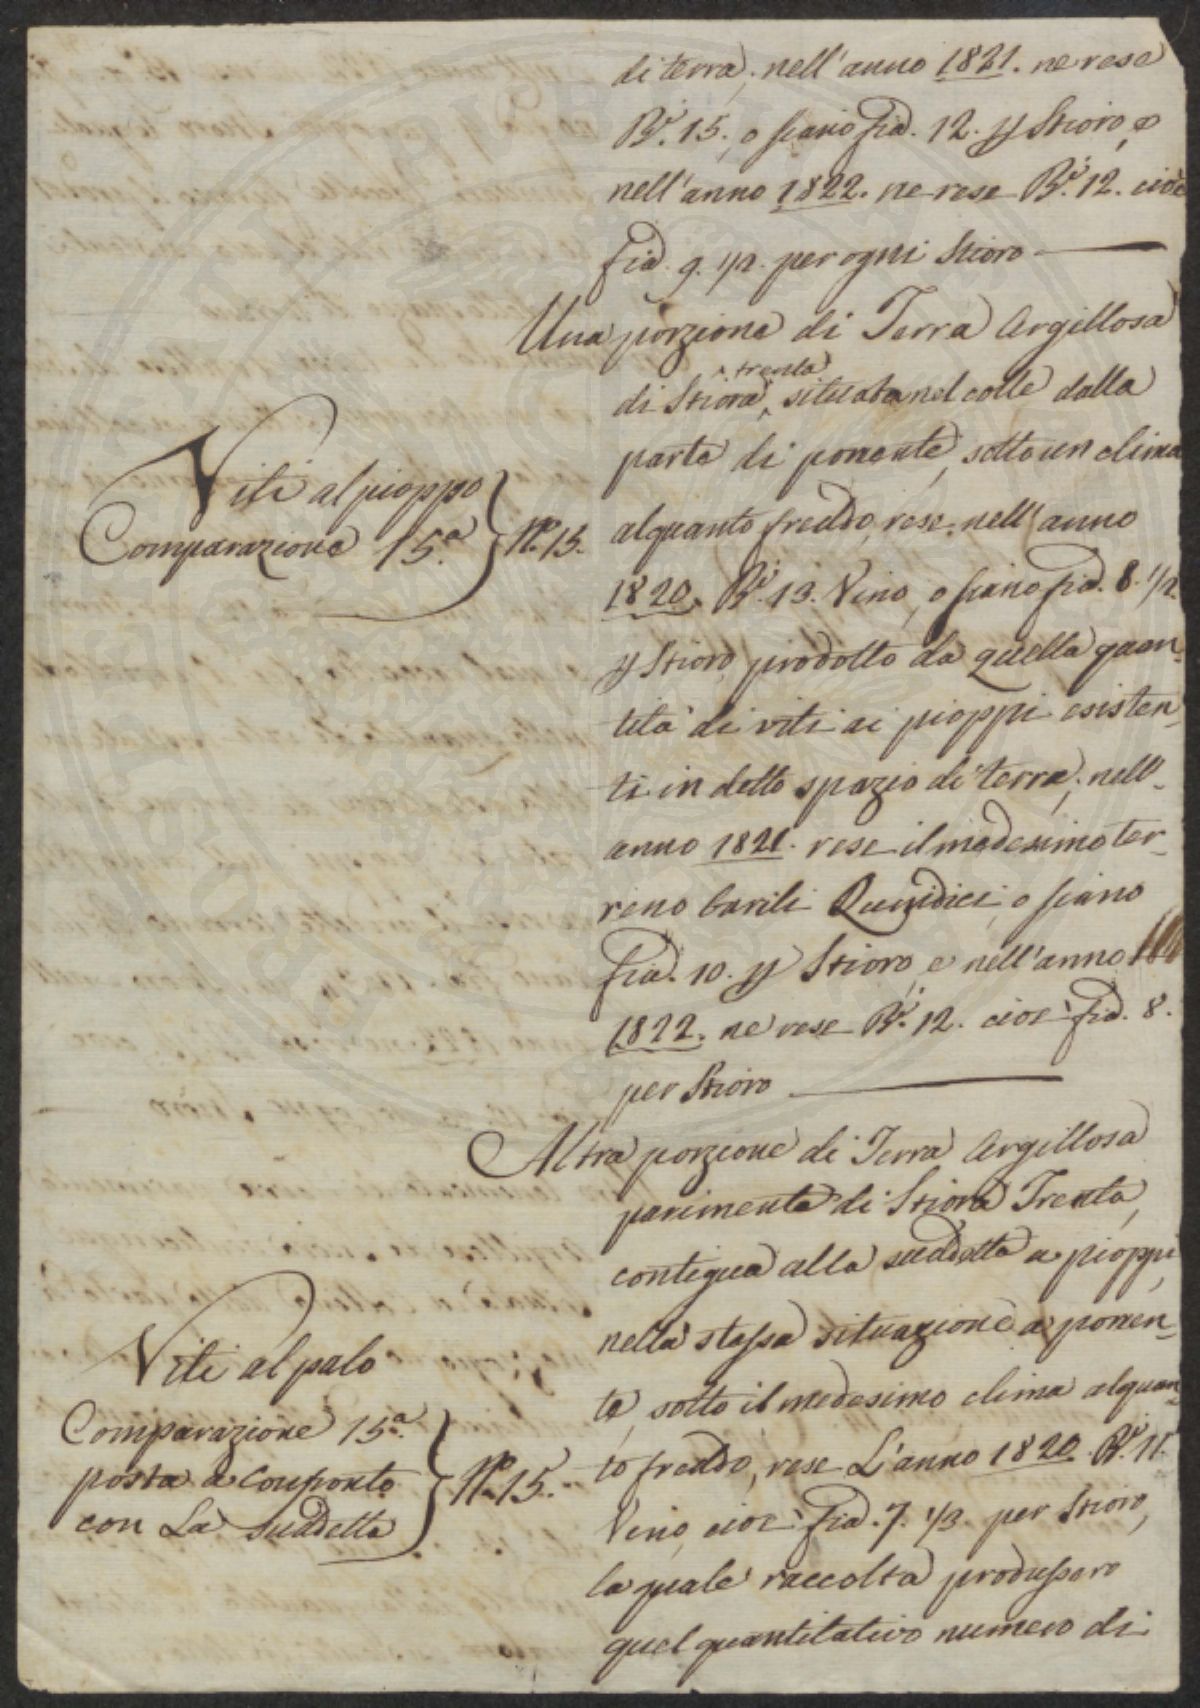 di terra, nell'anno 1821. ne rese
B.i 15. o siano fia. 12. p Stioro, e
nell'anno 1822. ne rese B.i 12. cioè
fia. 9. 1/2. per ogni Stioro
Una porzione di Terra Argillosa
di Stiora trenta situata nel colle dalla
parte di ponente, sotto un clima
Viti al pioppo
Comparazione 15.a N.o 15.
alquanto freddo, rese nell'anno
1820. B.i 13. Vino, o siano fia. 8. 1/2.
p Stioro prodotto da quella quan-
tità di viti ai pioppi esisten-
ti in detto spazio di terra, nell'
anno 1821. rese il medesimo ter-
reno barili Quindici, o siano
fia. 10. p Stioro, e nell'anno
1822. ne rese B.i 12. cioè fia. 8.
per Stioro
Altra porzione di Terra Argillosa
parimente di Stiora Trenta,
contigua alla suddetta a pioppi
nella stessa situazione a ponen-
Viti al palo
Comparazione 15.a
posta a Confronto
con La Suddetta N.o 15.
te, sotto il medesimo clima alquan-
to freddo, rese L'anno 1820. B.i 11.
Vino, cioè fia. 7. 1/3. per Stioro,
la quale raccolta produssero
quel quantitativo numero di